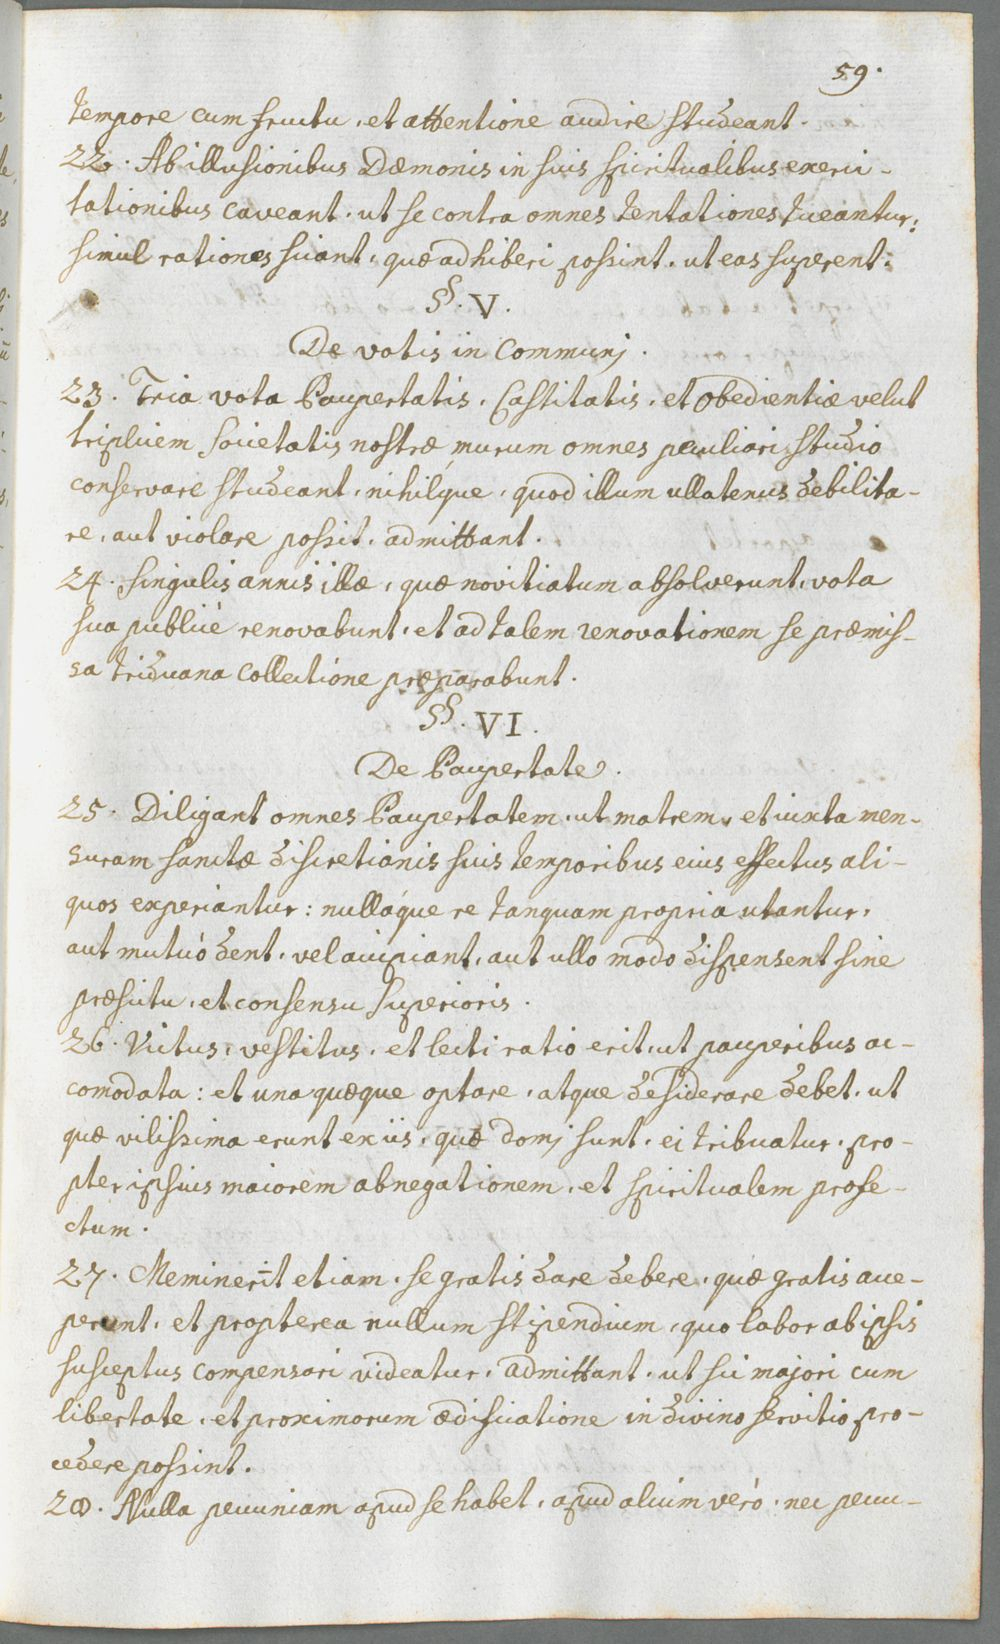 59.
tempore cum fructu, et attentione audire studeant.
22. Ab illusionibus Dæmonis in suis spiritualibus exerci-
tationibus caveant, ut se contra omnes tentationes tueantur;
simul rationes sciant, quæ adhiberi possint, ut eas superent.
§. V.
De votis in Communj.
23. Tria vota Paupertatis, Castitatis, et Obedientiæ velut
triplicem Societatis nostræ murum omnes peculiari studio
conservare studeant, nihilque, quod illum ullatenus debilita-
re, aut violare possit, admittant.
24. Singulis annis illæ, quæ novitiatum absolverunt, vota
sua publicè renovabunt, et ad talem renovationem se præmis-
sa triduana Collectione præparabunt.
§. VI.
De Paupertate.
25. Diligant omnes Paupertatem, ut matrem, et iuxta men-
suram sanctæ discretionis suis temporibus eius effectus ali-
quos experiantur: nullaque re tanquam propria utantur,
aut mutuò dent, vel accipiant, aut ullo modo dispensent sine
præscitu, et consensu Superioris.
26. Victus, vestitus, et lecti ratio erit, ut pauperibus ac-
comodata: et una quæque optare, atque desiderare debet, ut
quæ vilissima erunt ex iis, quæ domj sunt, ei tribuatur, pro-
pter ipsius maiorem abnegationem, et spiritualem profe-
ctum.
27. Meminerit etiam, se gratis dare debere, quæ gratis acce-
perunt, et propterea nullum stipendium, quo labor ab ipsis
susceptus compensari videatur, admittant, ut sic majori cum
libertate, et proximorum ædificatione in divino servitio pro-
cedere possint.
28. Nulla pecuniam apud se habet, apud alium verò, nec pecu-